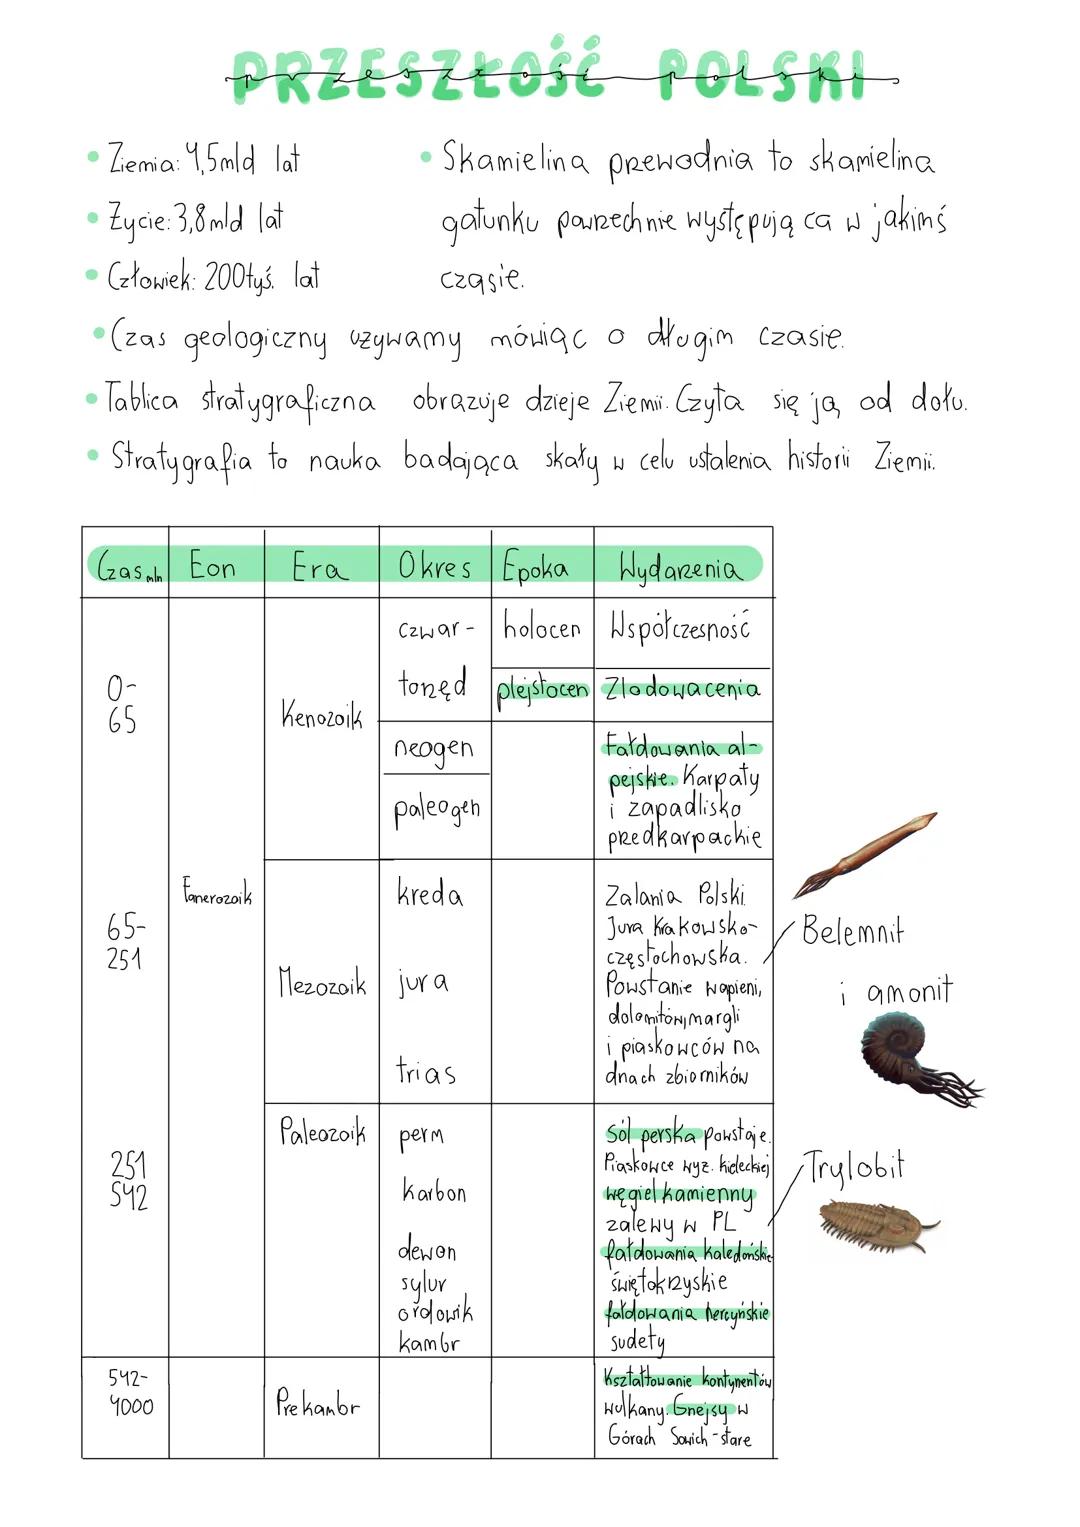 PRZESZŁOŚĆ POLSKI
przeszłość polski
• Ziemia: 4,5mld lat
• Życie: 3,8mld lat
• Człowiek: 200tyś. lat
• Skamielina przewodnia to skamielina
gatunku powrzechnie występująca w jakimś
czasie.
• Czas geologiczny używamy mówiąc o długim czasie.
• Tablica stratygraficzna obrazuje dzieje Ziemii. Czyta się ją od dołu.
• Stratygrafia to nauka badająca skały w celu ustalenia historii Ziemii.
Czas mln Eon Era Okres Epoka Wydarzenia
0-
65
Fanerozoik
Kenozoik
czwar-
torzęd
holocen Współczesność
plejstocen Zlodowacenia
neogen
paleogen
Fałdowania al-
pejskie. Karpaty
i zapadlisko
przedkarpackie
65-
251
Mezozoik
kreda
jura
trias
Zalania Polski.
Jura Krakowsko-
częstochowska.
Powstanie wapieni,
dolomitów, margli
i piaskowców na
dnach zbiorników
Belemnit
i amonit
251
542
Paleozoik
perm
karbon
dewon
sylur
ordowik
kambr
Sól perska powstaje.
Piaskowce wyż. kieleckiej
węgiel kamienny
zalewy w PL
fałdowania kaledońskie
świętokrzyskie
fałdowania hercyńskie
sudety
Trylobit
542-
4000
Prekambr
Kształtowanie kontynentów
wulkany. Gnejsy w
Górach Sowich - stare